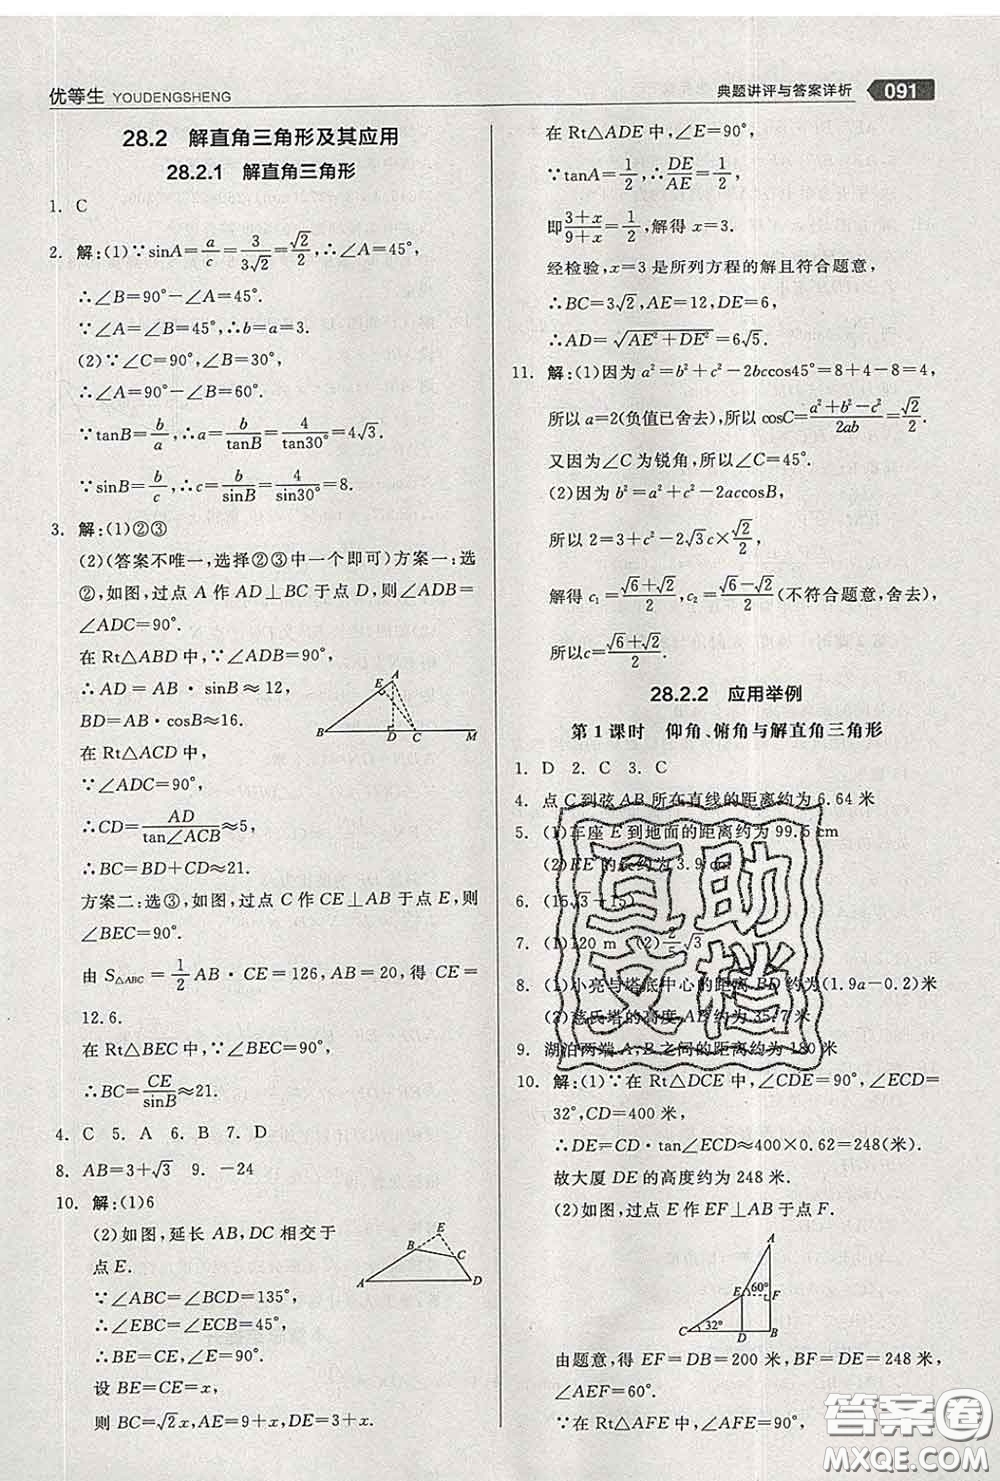 优等生 YOUDENGSHENG
典题讲评与答案详析 091
28.2 解直角三角形及其应用
28.2.1 解直角三角形
1. C
2. 解:(1)∵sinA=a/c=3/(3√2)=√2/2,∴∠A=45°,
∴∠B=90°-∠A=45°.
∵∠A=∠B=45°,∴b=a=3.
(2)∵∠C=90°,∠B=30°,
∴∠A=90°-∠B=60°.
∵tanB=b/a,∴a=b/tanB=4/tan30°=4√3.
∵sinB=b/c,∴c=b/sinB=4/sin30°=8.
3. 解:(1)②③
(2)(答案不唯一,选择②③中一个即可)方案一:选
②,如图,过点 A 作 AD⊥BC 于点 D,则∠ADB=
∠ADC=90°.
在 Rt△ABD 中,∵∠ADB=90°,
∴AD=AB·sinB≈12,
BD=AB·cosB≈16.
在 Rt△ACD 中,
∵∠ADC=90°,
A
B D C M
∴CD=AD/tan∠ACB≈5,
∴BC=BD+CD≈21.
方案二:选③,如图,过点 C 作 CE⊥AB 于点 E,则
∠BEC=90°.
由 S△ABC=1/2AB·CE=126,AB=20,得 CE=
12.6.
在 Rt△BEC 中,∵∠BEC=90°,
∴BC=CE/sinB≈21.
4. C 5. A 6. B 7. D
8. AB=3+√3 9. -24
10. 解:(1)6
(2)如图,延长 AB,DC 相交于
点 E.
∵∠ABC=∠BCD=135°,
∴∠EBC=∠ECB=45°,
∴BE=CE,∠E=90°.
设 BE=CE=x,
则 BC=√2x,AE=9+x,DE=3+x.
E
B C
A D
在 Rt△ADE 中,∠E=90°,
∵tanA=1/2,∴DE/AE=1/2,
即(3+x)/(9+x)=1/2,解得 x=3.
经检验,x=3 是所列方程的解且符合题意,
∴BC=3√2,AE=12,DE=6,
∴AD=√(AE²+DE²)=6√5.
11. 解:(1)因为 a²=b²+c²-2bccos45°=8+4-8=4,
所以 a=2(负值已舍去),所以 cosC=(a²+b²-c²)/2ab=√2/2.
又因为∠C 为锐角,所以∠C=45°.
(2)因为 b²=a²+c²-2accosB,
所以 2=3+c²-2√3c×√2/2,
解得 c₁=(√6+√2)/2,c₂=(√6-√2)/2(不符合题意,舍去),
所以c=(√6+√2)/2.
28.2.2 应用举例
第 1 课时 仰角、俯角与解直角三角形
1. D 2. C 3. C
4. 点 C 到弦 AB 所在直线的距离约为 6.64 米
5. (1)车座 E 到地面的距离约为 99.5 cm
(2)EE′的长约为 3.9 cm
6. (15√3+15)
7. (1)120 m (2)2/5√3
8. (1)小亮与塔底中心的距离 BD 约为(1.9a-0.2)米
(2)慈氏塔的高度 AB 约为 35.7 米
9. 湖泊两端 A,B 之间的距离约为 180 米
10. 解:(1)∵在 Rt△DCE 中,∠CDE=90°,∠ECD=
32°,CD=400 米,
∴DE=CD·tan∠ECD≈400×0.62=248(米).
故大厦 DE 的高度约为 248 米.
(2)如图,过点 E 作 EF⊥AB 于点 F.
A
E 60° F
C 32° D B
由题意,得 EF=DB=200 米,BF=DE=248 米,
∠AEF=60°.
∵在 Rt△AFE 中,∠AFE=90°,
互助
文档
答案圈
MXQE.COM